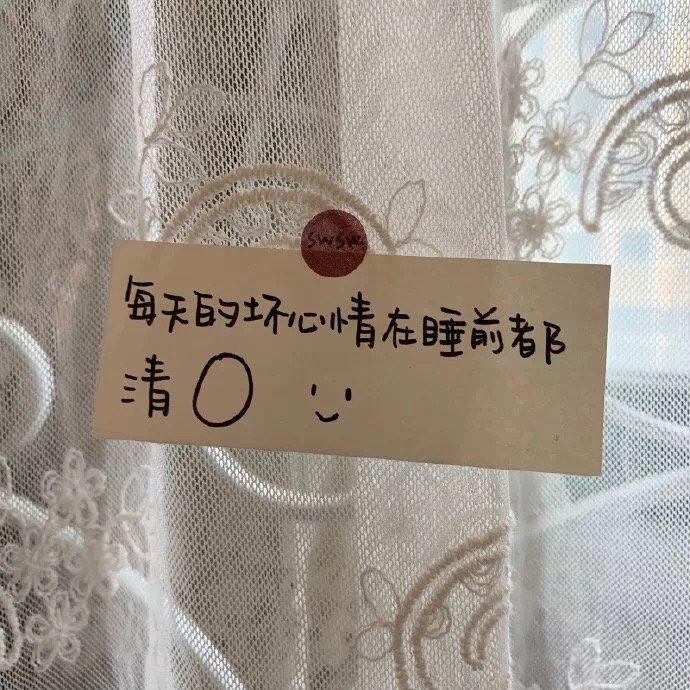 SWSW
每天的坏心情在睡前都
清〇